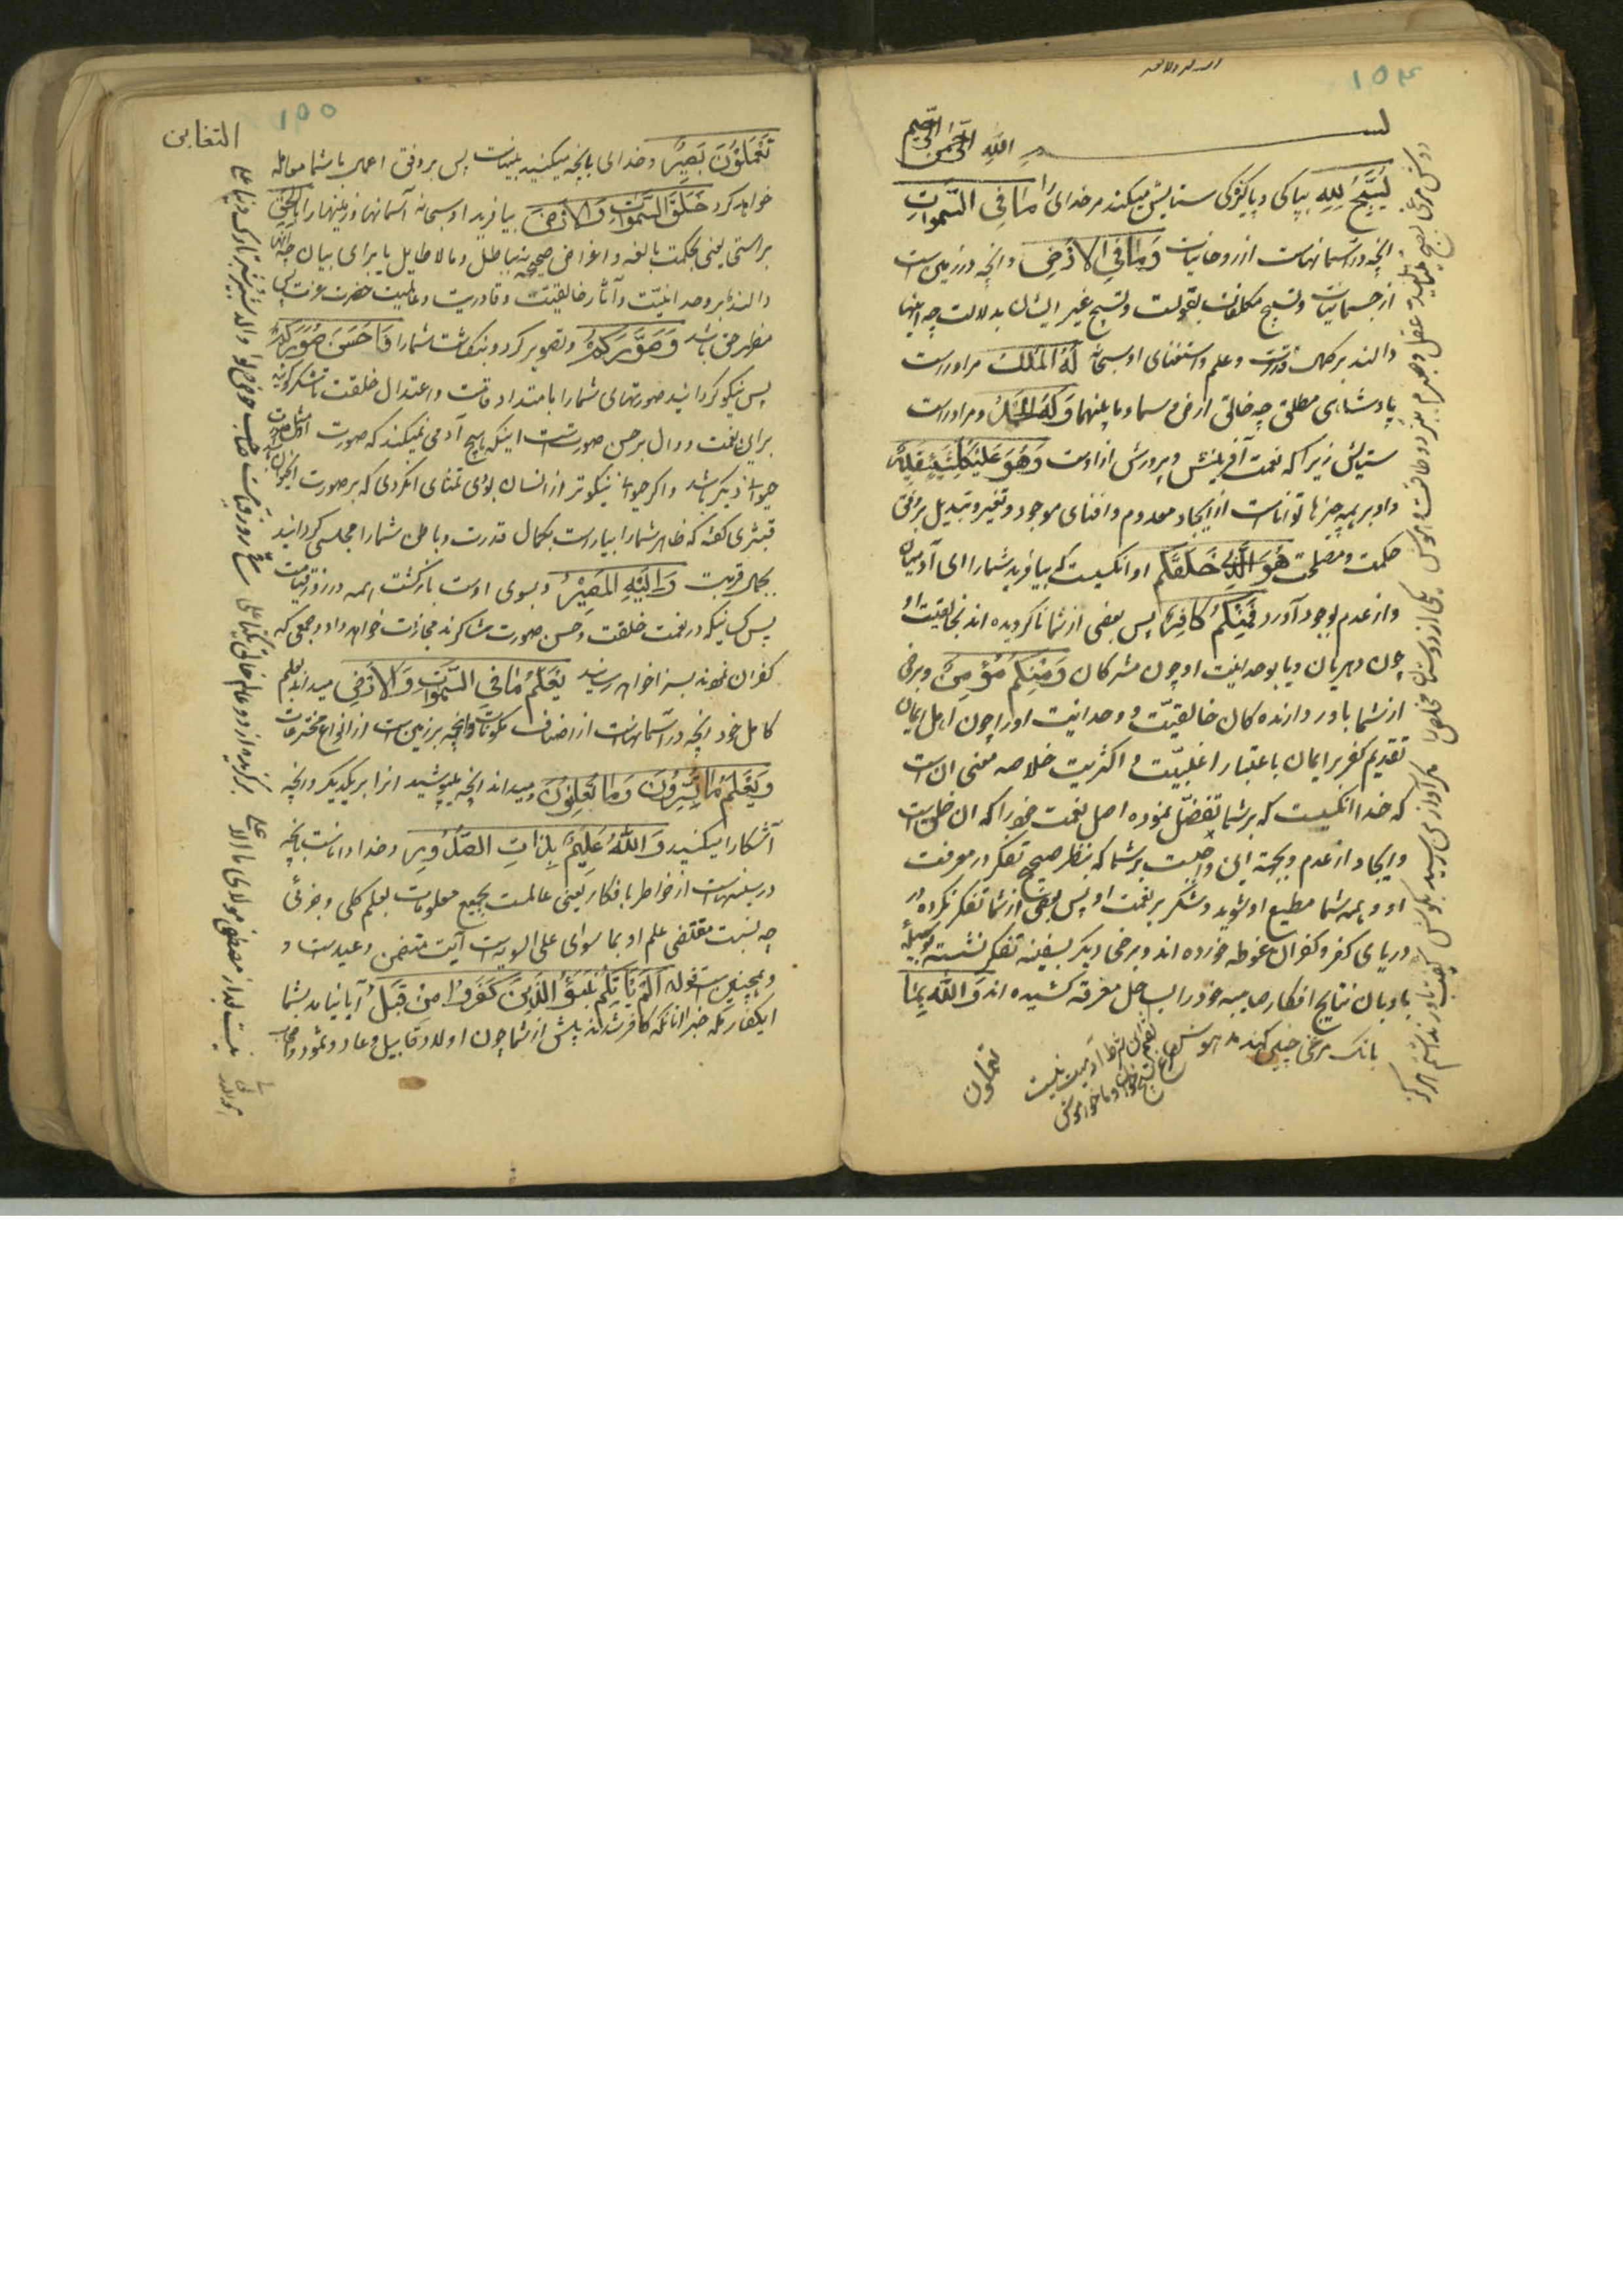 ۱۵۴
بسم الله الرحمن الرحیم
یُسَبِّحُ لِلّهِ بپاکی و پاکیزگی ستایش میکند مر خدای را مَا فِی السَّمٰوَاتِ
انچه در آسمانهاست از روحانیات وَمَا فِی الاَرْضِ و انچه در زمین است
از جسمانیات و تسبیح مکلفان بقولست و تسبیح غیر ایشان بدلالت چه اینها
دالند بر کمال قدرت و علم و استغنای او سبحانه لَهُ المُلْكُ مر اوراست
پادشاهی مطلق چه خالق ارض و سما و ما بینهما وَلَهُ الحَمْدُ و مر اوراست
ستایش زیرا که نعمت آفرینش و پرورش ازوست وَهُوَ عَلیٰ كُلِّ شَیْءٍ قَدِیْرٌ
و او بر همه چیزها تواناست از ایجاد معدوم و افنای موجود و تغیر و تبدیل بر وفق
حکمت و مصلحت هُوَ الَّذِیْ خَلَقَكُمْ او انکسیست که بیافرید شما را ای آدمیان
و از عدم بوجود آورد فَمِنْكُمْ كَافِرٌ پس بعضی از شما ناگرویده اند بخالقیت او
چون دهریان و یا بوحدانیت او چون مشرکان وَمِنْكُمْ مُؤْمِنٌ و برخی
از شما باور دارنده کان خالقیّت و وحدانیت اورا چون اهل ایمان
تقدیم کفر بر ایمان باعتبار اغلبیّت و اکثریت خلاصه معنی ان است
که خدا انکسیست که بر شما تفضّل نموده اصل نعمت خود را که ان خلق است
و ایجاد از عدم و بجهة این واجبست بر شما که بنظر صحیح تفکر در معرفت
او و همه شما مطیع او شوید و شکر بر نعمت او پس بعضی از شما تفکر نکرده در
دریای کفر و کفران غوطه خورده اند و برخی دیگر بسفینه تفکر نشسته بوسیلهٔ
بادبان نتایج افکار صایبه خود را بساحل معرفت کشیده اند وَاللّهُ بِمَا
تعملون
دوش مرغی بصبح مینالید عقل و صبرم ببرد و طاقت و هوش
یکی از دوستان مخلص را مگر آواز من رسید بگوش
گفت باور نداشتم که ترا
بانک مرغی چنین کند مدهوش
گفتم این شرط آدمیت نیست
مرغ تسبیح خوان و ما خاموش
۱۵۵
التغابن
تَعْمَلُوْنَ بَصِیْرٌ و خدای بانچه میکنید بیناست پس بر وفق اعمال با شما معامله
خواهد کرد خَلَقَ السَّمٰوَاتِ وَالاَرْضَ بیافرید او سبحانه آسمانها و زمینها را بِالْحَقِّ
براستی یعنی بحکمت بالغه و اغراض صحیحه نه بباطل و ما لا طایل یا برای بیان حق
دالند بر وحدانیّت و آثار خالقیّت و قادریت و عالمیت حضرت عزت پس
مظهر حق باشد وَصَوَّرَكُمْ و تصویر کرد و بنگاشت شما را فَاَحْسَنَ صُوَرَكُمْ
پس نیکو گردانید صورتهای شما را بامتداد قامت و اعتدال خلقت تا شکر گوئید
برای نعمت و دال بر حسن صورتست اینکه هیچ آدمی نمیکند که صورت او مثل صورت
حیوانی دیگر باشد و اگر حیوانی نیکوتر از انسان بودی تمنای ان کردی که بر صورت
قشیری گفته که ظاهر شما را بیاراست بکمال قدرت و باطن شما را مجلسی گردانید
بجمال قربت وَاِلَیْهِ المَصِیْرُ و بسوی اوست بازگشت همه در روز قیامت
پس کسانیکه در نعمت خلقت و حسن صورت شاکرند مجازات خواهد داد و جمعی که
کفران نمودند بسزا خواهد رسانید یَعْلَمُ مَا فِی السَّمٰوَاتِ وَالاَرْضِ میداند بعلم
کامل خود انچه در آسمانهاست از اصناف مکونات و انچه بر زمین است از انواع مخترعات
وَیَعْلَمُ مَا تُسِرُّونَ وَمَا تُعْلِنُوْنَ و میداند انچه میپوشید انرا بر یکدیگر و انچه
آشکارا میکنید وَاللّهُ عَلِیْمٌ بِذَاتِ الصُّدُوْرِ و خدا داناست بانچه
در سینهاست از خواطر با فکار یعنی عالمست بجمیع معلومات بعلم کلی و جزئی
چه نسبت مقتضی علم او بما سوای علی السویه است آیت متضمن وعیدست و
و همچنین است قوله اَلَمْ یَأْتِكُمْ نَبَؤُا الَّذِیْنَ كَفَرُوْا مِنْ قَبْلُ آیا نیامد بشما
ای کفار مکه خبر انانکه کافر شدند پیش از شما چون اولاد قابیل و عاد و ثمود و اصحاب